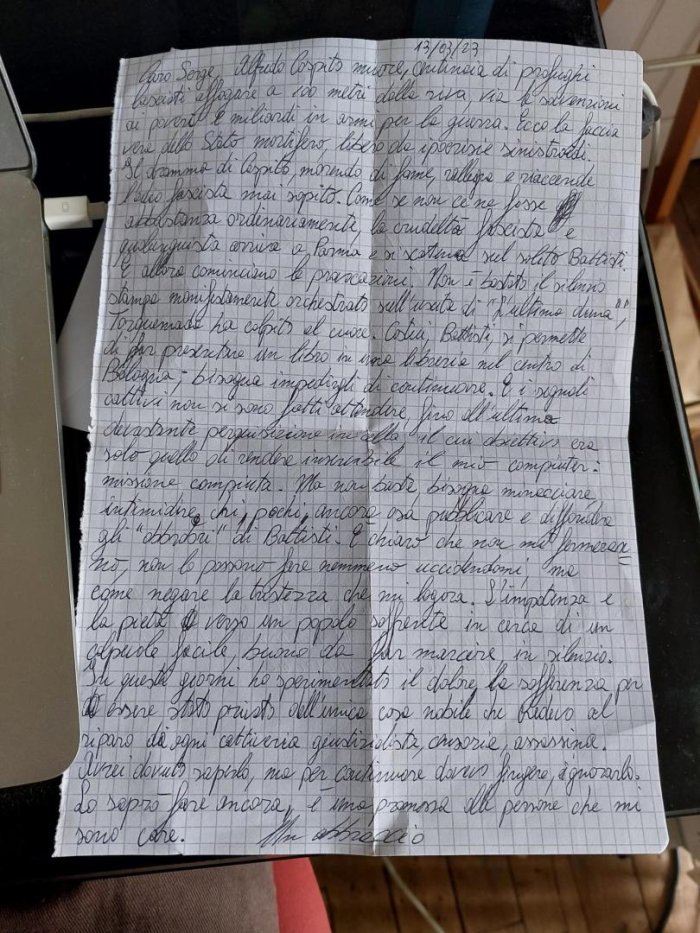 13/03/23
Caro Serge, Alfredo Cospito muore, centinaia di profughi
lasciati affogare a 100 metri dalla riva, via le sovvenzioni
ai poveri e miliardi in armi per la guerra. Ecco la faccia
vera dello Stato mortifero, libero da ipocrisie sinistroidi.
Il dramma di Cospito, morendo di fame, rallegra e riaccende
l'odio fascista mai sopito. Come se non ce ne fosse
abbastanza ordinariamente, la crudeltà fascista e
qualunquista arriva a Parma e si scatena sul solito Battisti.
E allora cominciano le provocazioni. Non è bastato il silenzio
stampa manifestamente orchestrato sull'uscita di "L'ultima duna",
Torquemada ha colpito al cuore. Costui, Battisti, si permette
di far presentare un libro in una libreria nel centro di
Bologna; bisogna impedirgli di continuare. E i segnali
cattivi non si sono fatti attendere, fino all'ultima
devastante perquisizione in cella, il cui obiettivo era
solo quello di rendere inservibile il mio computer:
missione compiuta. Ma non basta, bisogna minacciare,
intimidire chi, pochi, ancora osa pubblicare e diffondere
gli "obbrobri" di Battisti. È chiaro che non mi fermeran
no, non lo possono fare nemmeno uccidendomi, ma
come negare la tristezza che mi logora. L'impotenza e
la pietà verso un popolo soffrente in cerca di un
colpevole facile, buono da far marcire in silenzio.
In questi giorni, ho sperimentato il dolore, la sofferenza per
essere stato privato dell'unica cosa nobile che badavo al
riparo da ogni cattiveria giustizialista, censoria, assassina.
Avrei dovuto saperlo, ma per continuare dovevo fingere, ignorarlo.
Lo saprò fare ancora, è una promessa alle persone che mi
sono care. Un abbraccio